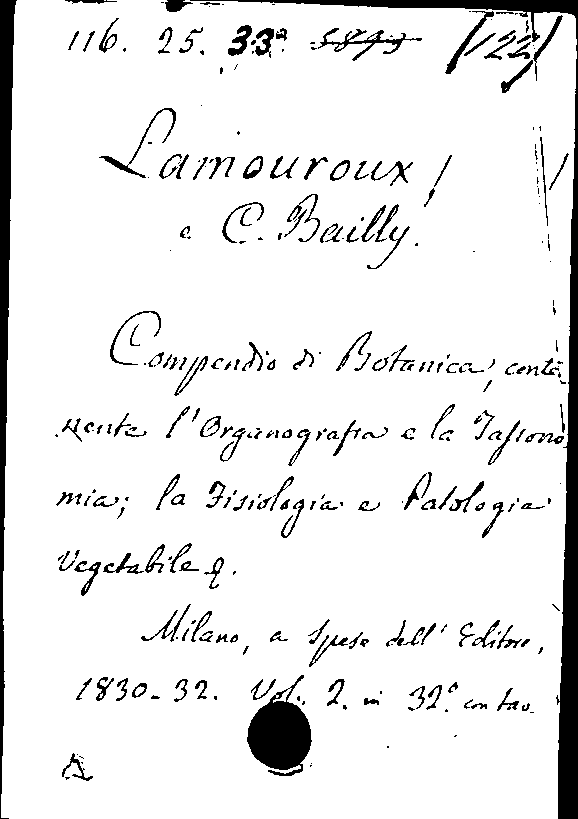 116. 25. 33ª. 5893 (122)
Lamouroux,
e C. Bailly.
Compendio di Botanica, conte-
nente l'Organografia e la Tassono-
mia; la Fisiologia e Patologia
Vegetabile
Milano, a spese dell' Editore,
1830-32. Vol. 2. in 32.° con tav.